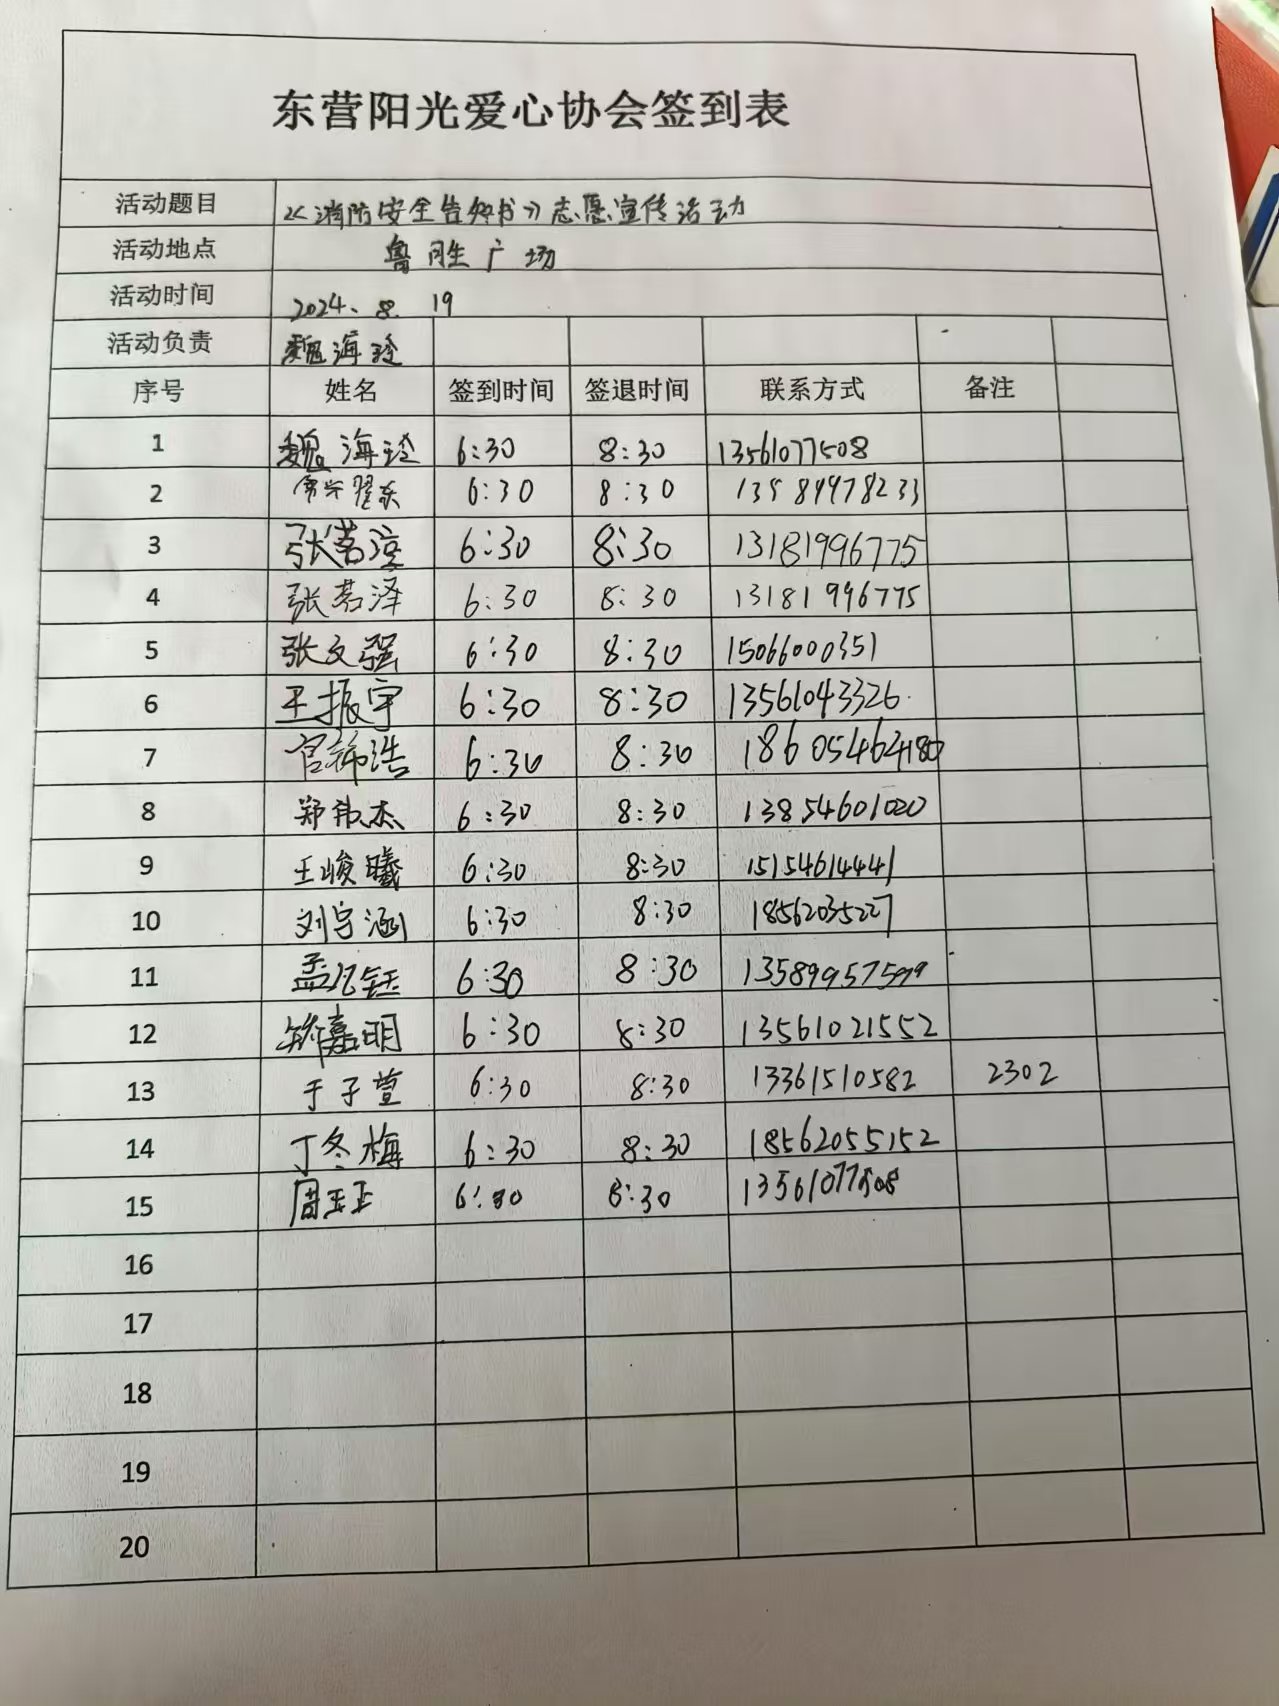 东营阳光爱心协会签到表
活动题目 《消防安全告知书》志愿宣传活动
活动地点 鲁胜广场
活动时间 2024.8.19
活动负责 魏海玲
序号 姓名 签到时间 签退时间 联系方式 备注
1 魏海玲 6:30 8:30 13561077508
2 6:30 8:30
3 张茗滢 6:30 8:30 13181996775
4 张茗泽 6:30 8:30 13181996775
5 张文强 6:30 8:30 15066000351
6 王振宇 6:30 8:30 13561043326
7 6:30 8:30 18605464180
8 郑伟杰 6:30 8:30 13854601020
9 王峻曦 6:30 8:30 15154614441
10 刘宇涵 6:30 8:30 18562035227
11 孟凡钰 6:30 8:30
12 嘉明 6:30 8:30 13561021552
13 于子萱 6:30 8:30 13361510582 2302
14 丁冬梅 6:30 8:30 18562055152
15 周玉正 6:30 8:30 13561077508
16
17
18
19
20